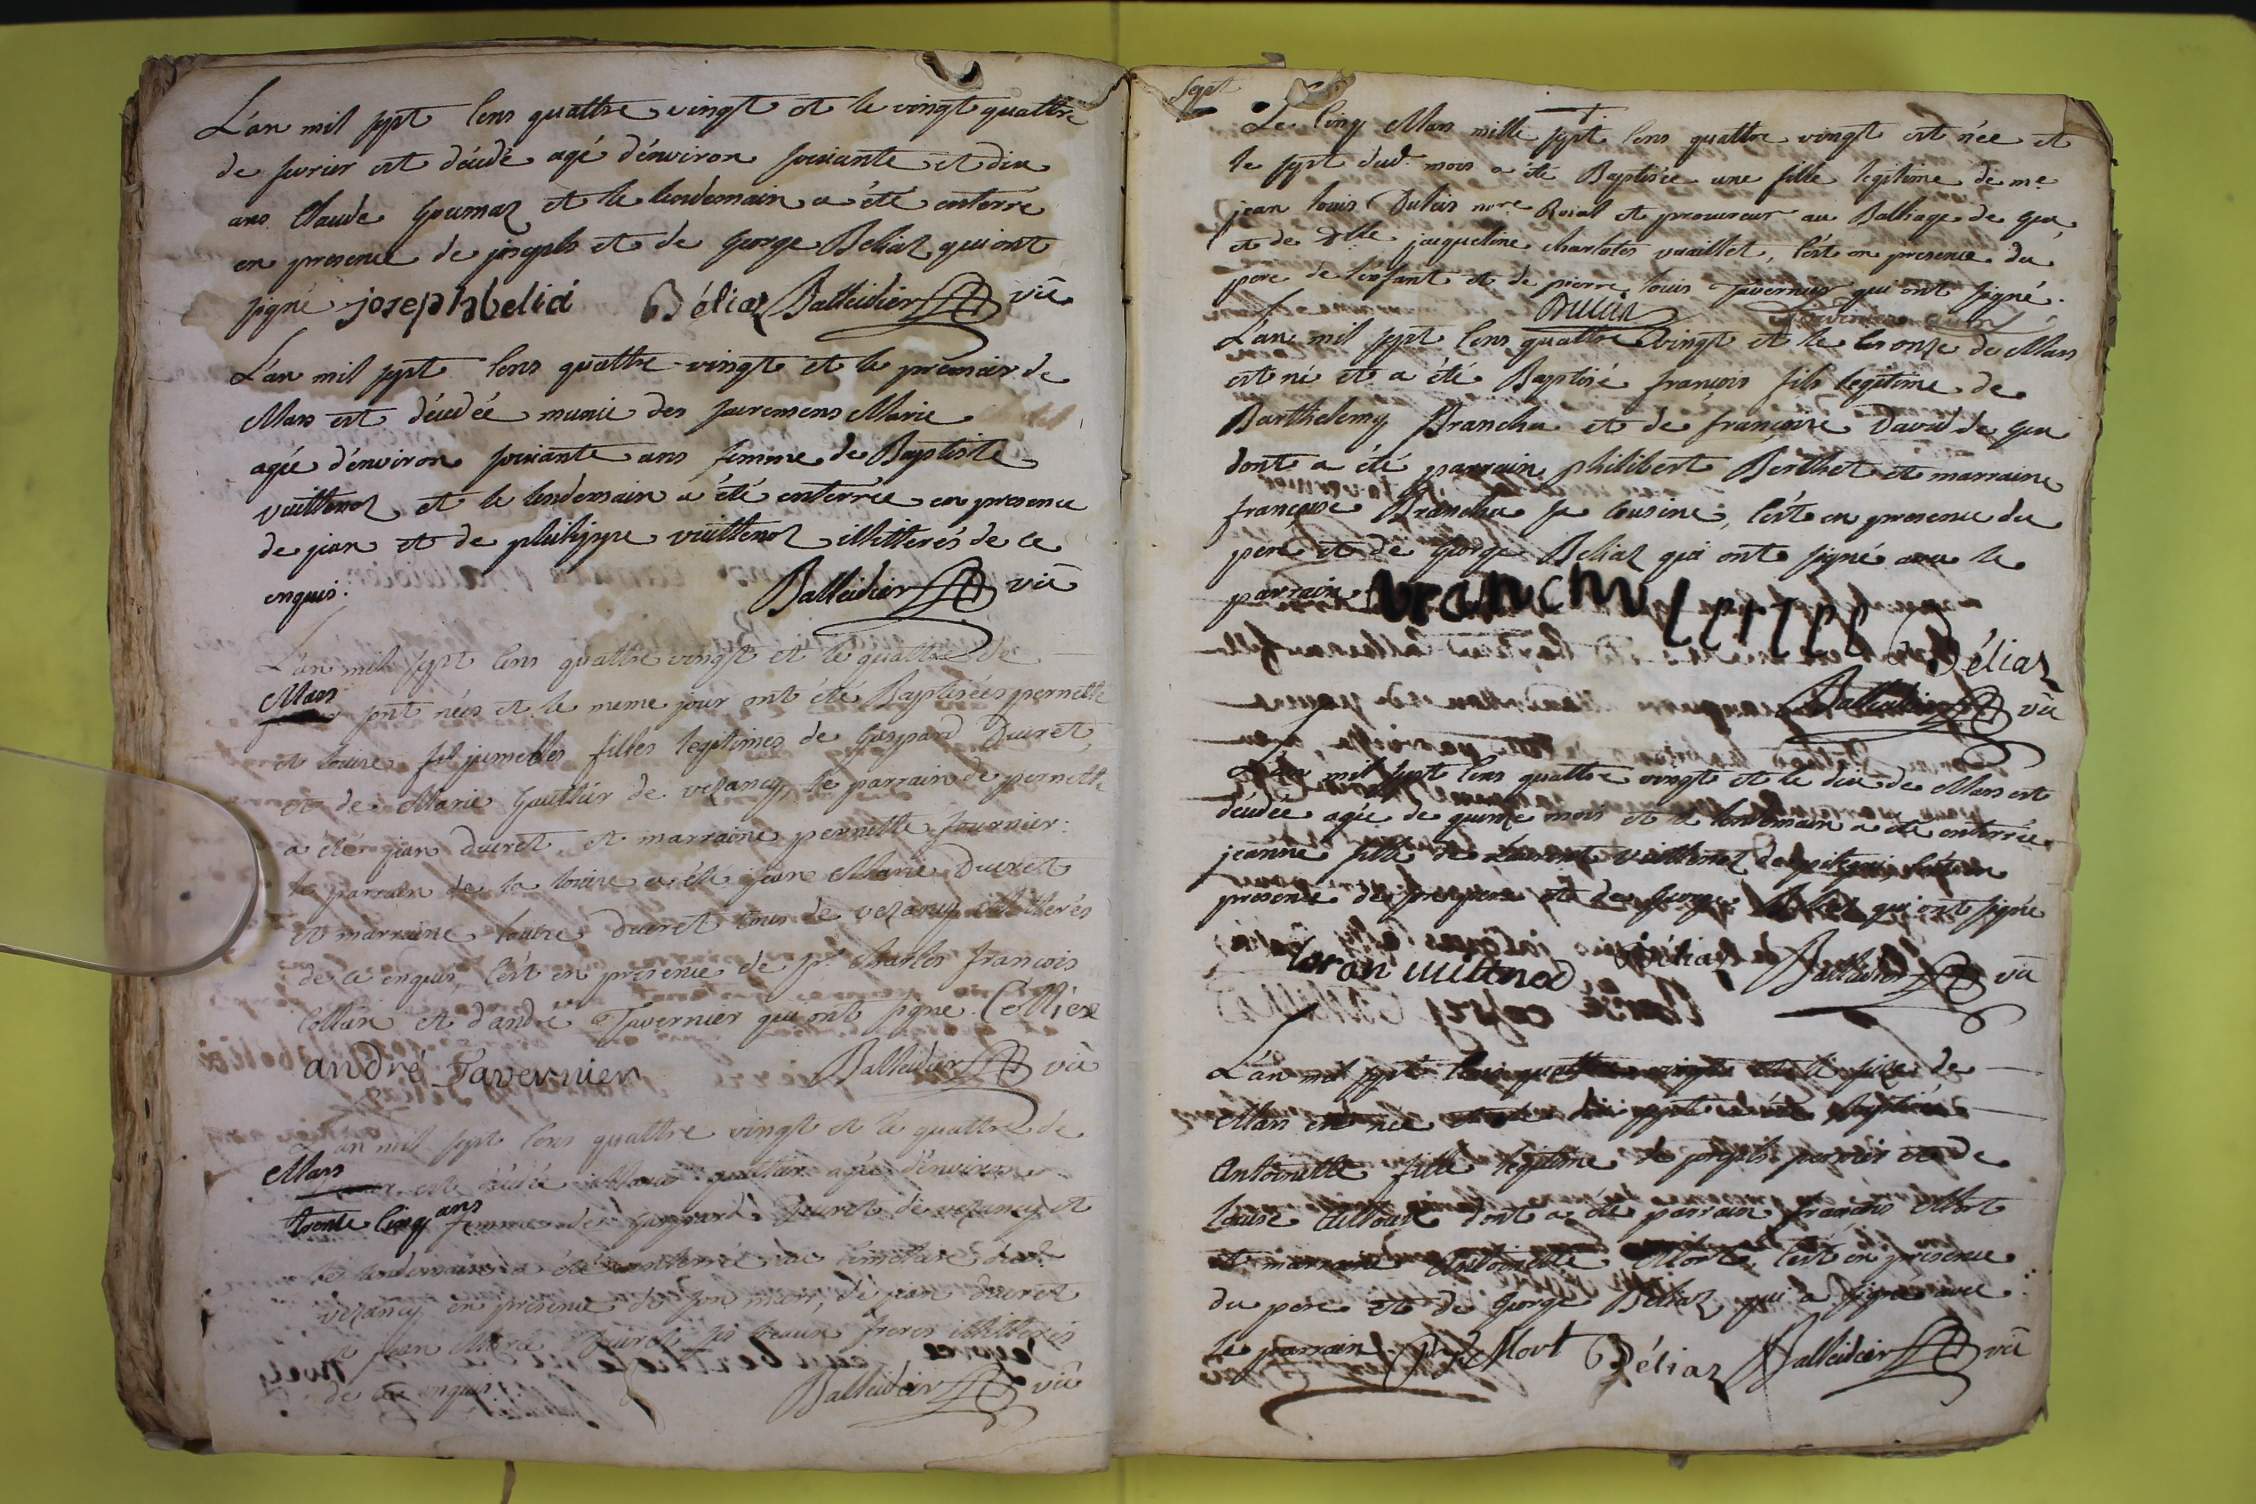 L'an mil sept Cens quattre vingt et le vingt quattre
de fevrier est décédé agé d'environ soixante et dix
ans Claude Goumaz et le lendemain a été enterré
en presence de joseph et de George Beliaz qui ont
signé josephbelia Béliaz Balleidier vic
L'an mil sept Cens quattre vingt et le premier de
Mars est décédée munie des sacremens Marie
agée d'environ soixante ans femme de Baptiste
vuittenoz et le lendemain a été enterrée en presence
de jean et de philippe vuittenoz illitterés de ce
enquis. Balleidier vic
L'an mil sept Cens quattre vingt et le quattre de
Mars sont nées et le meme jour ont été Baptisées pernette
et louise jumelles filles legitimes de Gaspard Ducret
et de Marie Gauthier de vezancy, le parrain de pernette
a été jean Ducret, et marraine pernette fournier:
le parrain de la louise a été jean Marie Ducret
et marraine louise Ducret tous de vezancy illitterés
de ce enquis, C'est en presence de Sr. Charles françois
et d'andré Tavernier qui ont signé.
andré Tavernier Balleidier vic
L'an mil sept Cens quattre vingt et le quattre de
Mars est décédée Marie Gauthier agée d'environ
trente Cinq ans femme de Gaspard Ducret de vezancy et
le lendemain a été enterrée au Cimetiere dud.
vezancy en presence de son mari, de jean Ducret
et jean Marie Ducret ses beaux freres illitterés
de ce enquis. Balleidier vic
Sept
Le Cinq Mars mille sept Cens quattre vingt est née et
le sept dud. mois a été Baptisée une fille legitime de me.
jean louis nore. Roial et procureur au Balliage de Gex
et de Dlle jacqueline charlotes vuaillet, C'est en presence du
pere de l'enfant et de pierre louis Tavernier qui ont signé.
L'an mil sept Cens quattre vingt et le onze de Mars
est né et a été Baptisé françois fils legitime de
Barthelemy Branchu et de françoise David de Gex
dont a été parrain philibert Berthet et marraine
françoise Branchu sa Cousine, C'est en presence du
pere et de George Beliaz qui ont signé avec le
parrain Béliaz
Balleidier vic
L'an mil sept Cens quattre vingt et le dix de Mars est
décédée agée de quinze mois et le lendemain a été enterrée
jeanne fille de Laurent vuittenoz
presence de son pere et de George Beliaz qui ont signé
Béliaz Balleidier vic
L'an mil sept Cens quattre vingt et le seize de
Mars est née
Antoinette fille legitime de joseph perrier et de
Louise dont a été parrain françois Mort
et marraine Antoinette Mort, C'est en presence
du pere et de George Beliaz qui a signé avec
le parrain. Mort Béliaz Balleidier vic